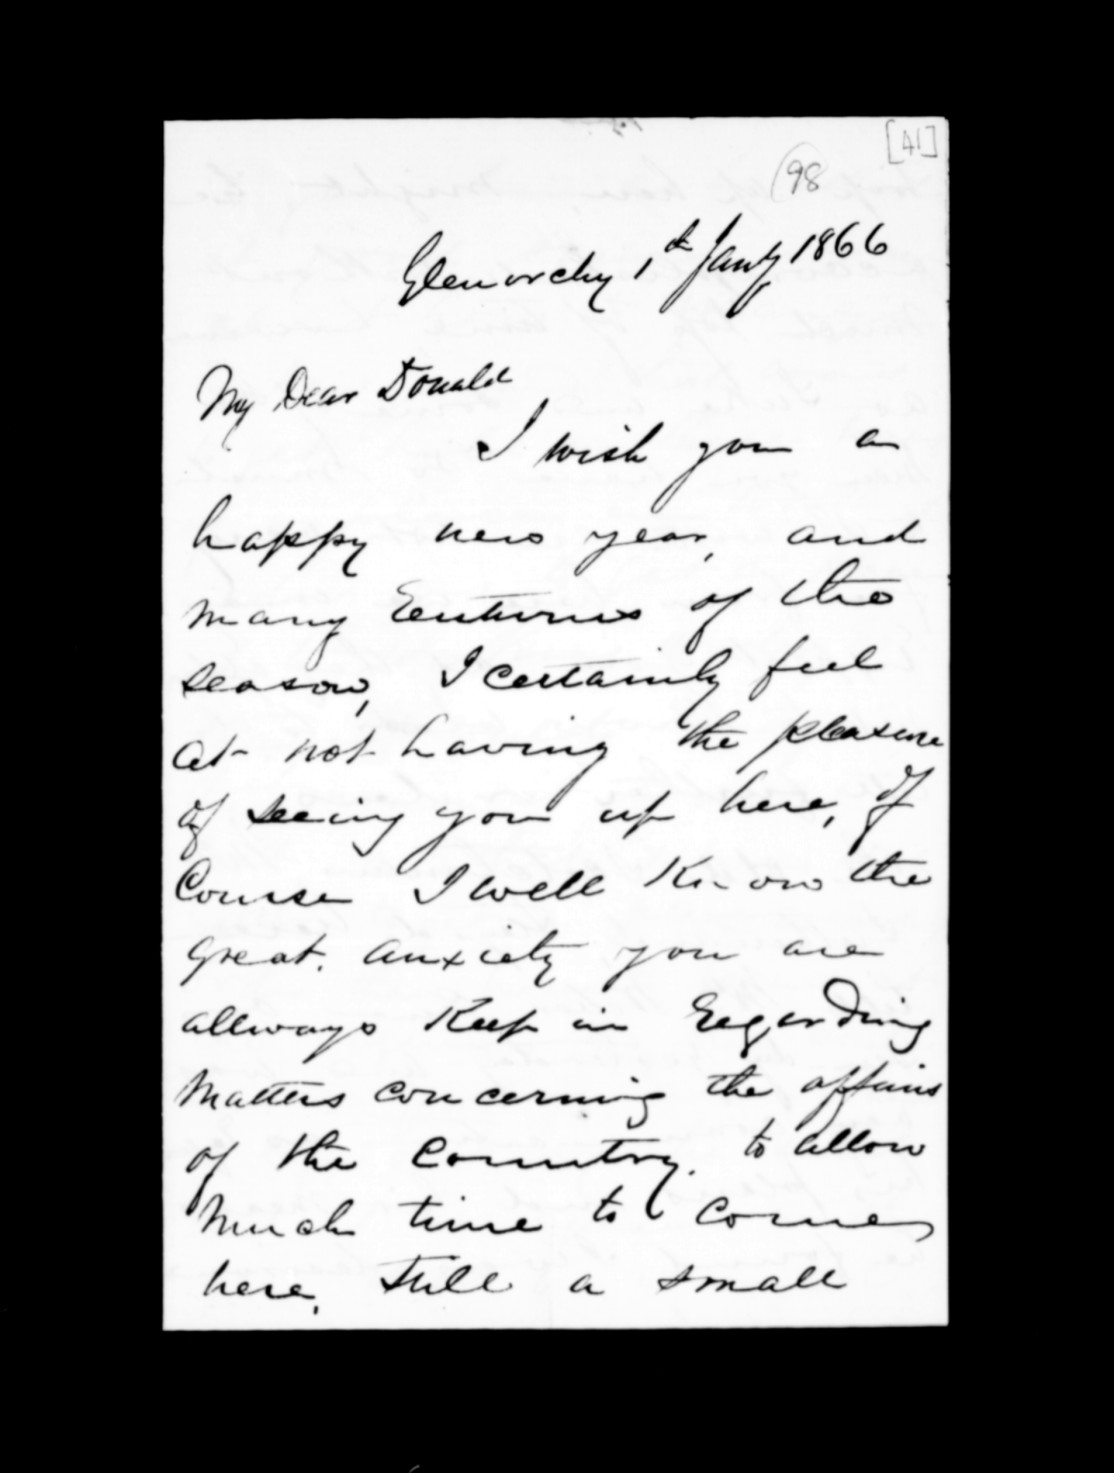 [41]
98
Glenorchy 1st Jany 1866
My Dear Donald
I wish you a
happy new year, and
many Returns of the
season, I certainly feel
at not having the pleasure
of seeing you up here, Of
Course I well Know the
great. anxiety you are
allways Keep in Regarding
Matters concerning the affairs
of the Country. to allow
much time to Come
here, still a small